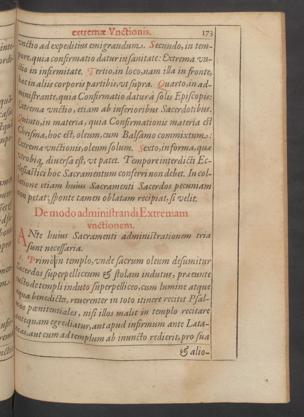 extremæ Vnctionis. 173
vnctio ad expeditius emigrandum. Secundo, in tem-
pore, quia confirmatio datur in sanitate: Extrema vn-
ctio in infirmitate. Tertio, in loco, nam illa in fronte,
hæc in aliis corporis partibus, vt supra. Quarto, in ad-
ministrante, quia Confirmatio datur à solis Episcopis:
Extrema vnctio, etiam ab inferioribus Sacerdotibus.
Quinto, in materia, quia Confirmationis materia est
Chrisma, hoc est, oleum, cum Balsamo commixtum:
Extremæ vnctionis, oleum solum. Sexto, in forma, quæ
vtrobiq, diuersa est, vt patet. Tempore interdicti Ec-
clesiastici hoc Sacramentum conferri non debet. In col-
latione etiam huius Sacramenti Sacerdos pecuniam
non petat; sponte tamen oblatam recipiat, si velit.
De modo administrandi Extremam
vnctionem.
ANte huius Sacramenti administrationem tria
sunt necessaria.
Primùm templo, vnde sacrum oleum desumitur
Sacerdos superpelliceum & stolam indutus, præeunte
templi induto superpelliceo, cum lumine atque
aqua benedicta, reuerenter in toto itinere recitet Psal-
pœnitentiales, nisi illos malit in templo recitare
antequam egrediatur, aut apud infirmum ante
aut cum ad templum ab inuncto redierit, pro sua
& alio-